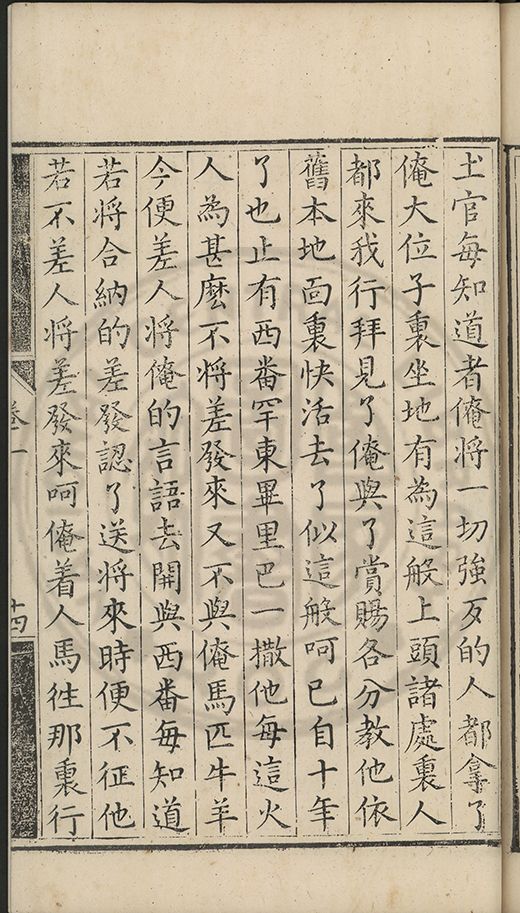 土官每知道者俺將一切強歹的人都拿了
俺大位子裏坐地有為這般上頭諸處裏人
都來我行拜見了俺與了賞賜各分教他依
舊本地面裏快活去了似這般呵已自十年
了也止有西番罕東畢里巴一撒他每這火
人為甚麼不將差發來又不與俺馬匹牛羊
今便差人將俺的言語去開與西番每知道
若將合納的差發認了送將來時便不征他
若不差人將差發來呵俺着人馬往那裏行
卷一
十四